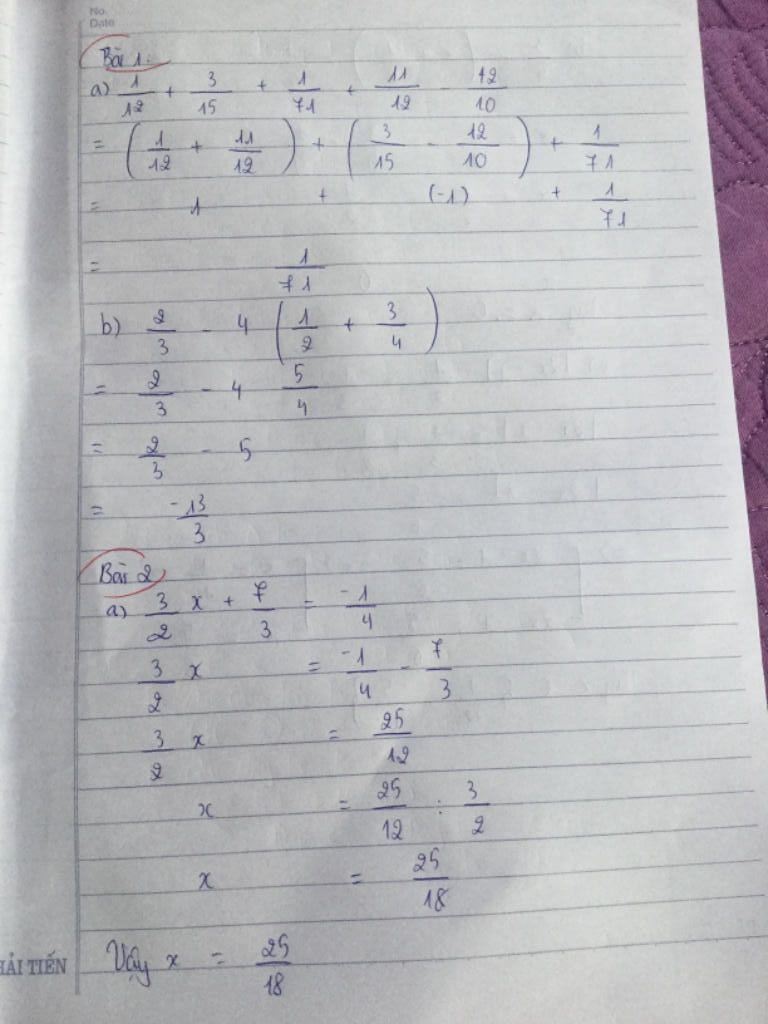 No.
Date
Bài 1:
a) 1/12 + 3/15 + 1/71 + 11/12 - 12/10
= (1/12 + 11/12) + (3/15 - 12/10) + 1/71
= 1 + (-1) + 1/71
= 1/71
b) 2/3 - 4 (1/2 + 3/4)
= 2/3 - 4 5/4
= 2/3 - 5
= -13/3
Bài 2
a) 3/2 x + 7/3 = -1/4
3/2 x = -1/4 - 7/3
3/2 x = 25/12
x = 25/12 : 3/2
x = 25/18
Vậy x = 25/18
HẢI TIẾN